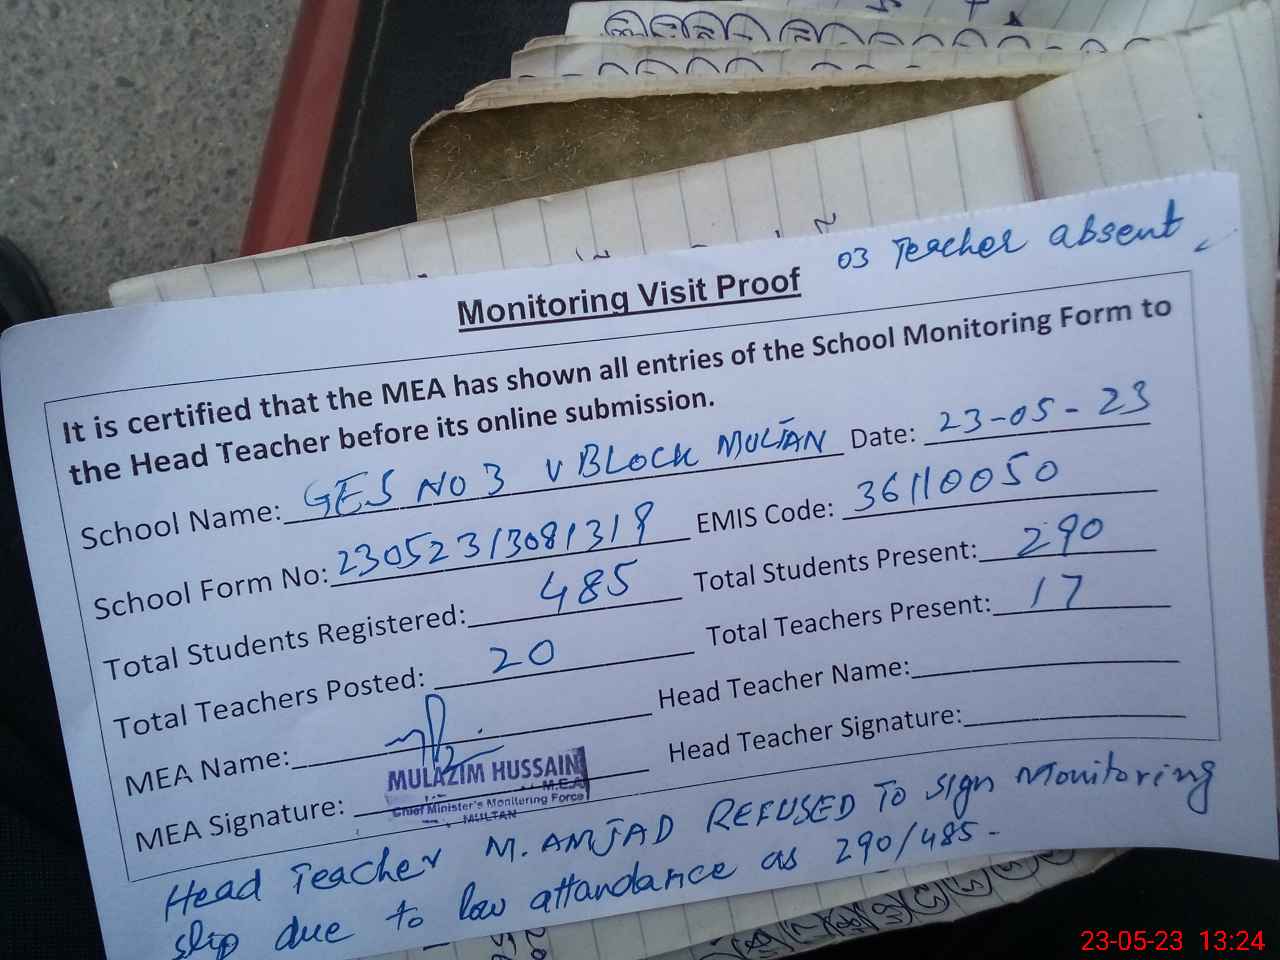 03 Teacher absent
Monitoring Visit Proof
It is certified that the MEA has shown all entries of the School Monitoring Form to
the Head Teacher before its online submission.
School Name: GES NO 3 V BLOCK MULTAN Date: 23-05-23
School Form No: 23052313081319 EMIS Code: 36110050
Total Students Registered: 485 Total Students Present: 290
Total Teachers Posted: 20 Total Teachers Present: 17
MEA Name: Head Teacher Name:
MEA Signature: Head Teacher Signature:
MULAZIM HUSSAIN
M.E.A
Chief Minister's Monitoring Force
MULTAN
Head Teacher M. AMJAD REFUSED TO sign Monitoring
slip due to low attandance as 290/485-
23-05-23 13:24